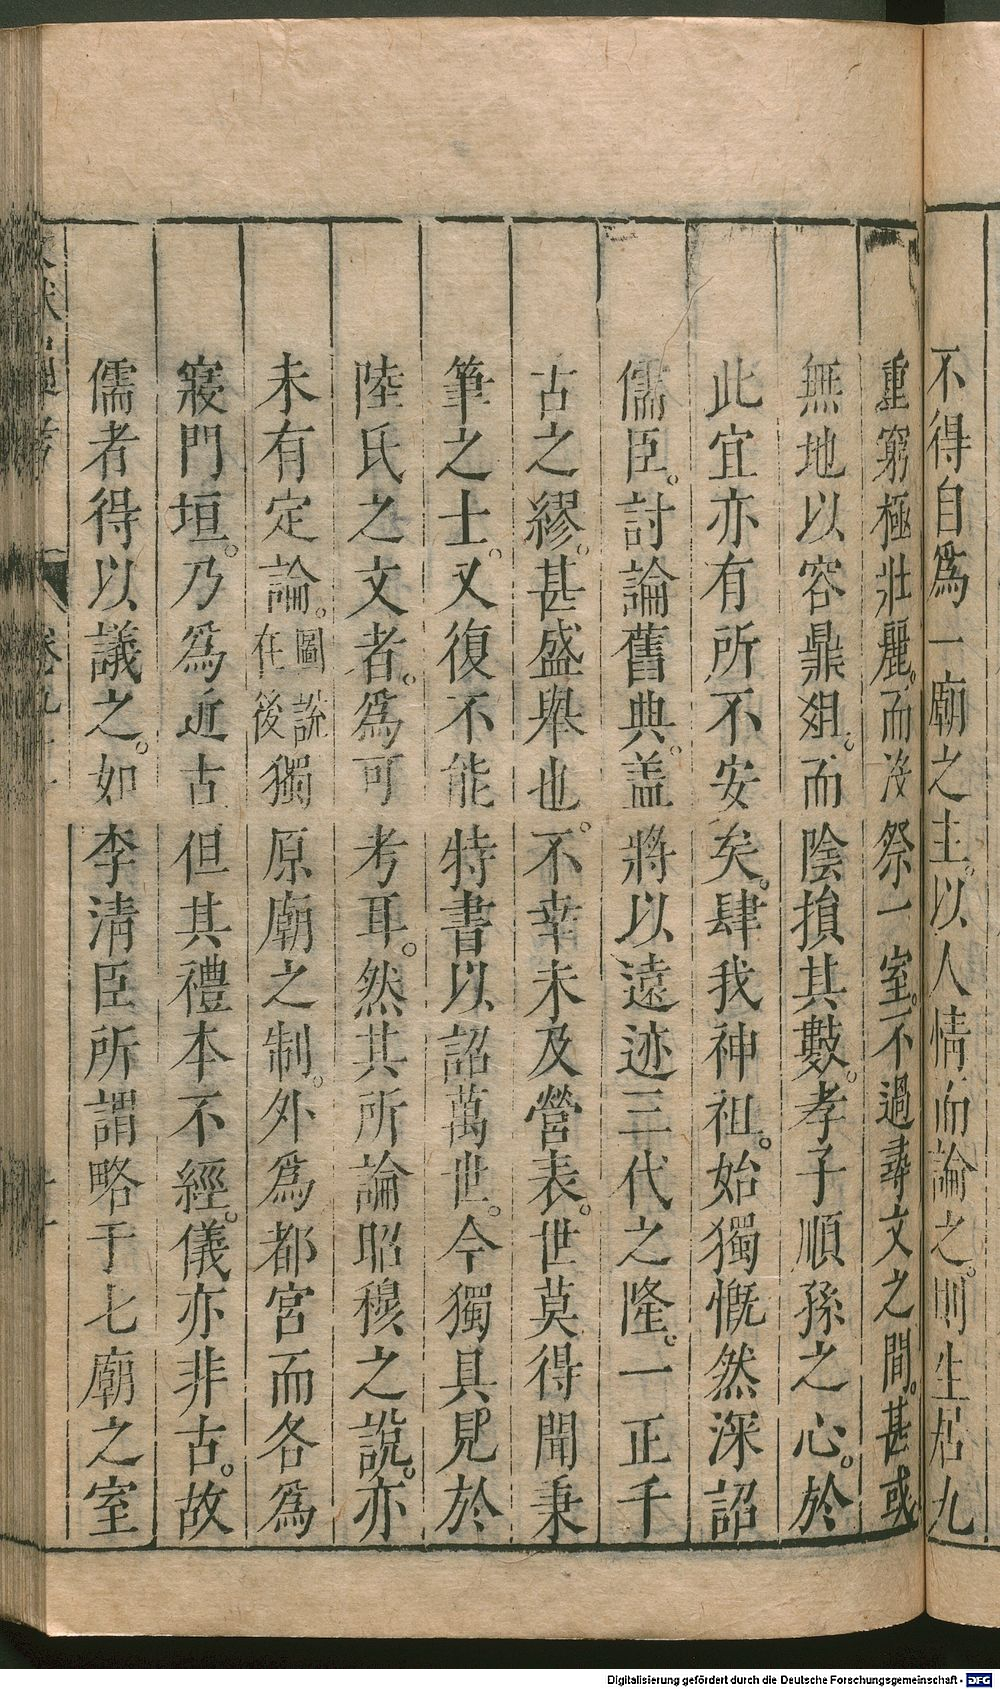 不得自爲一廟之主。以人情而論之。則生居九
重窮極壯麗。而沒祭一室。不過尋丈之間。甚或
無地以容鼎俎。而陰損其數。孝子順孫之心。於
此宜亦有所不安矣。肆我神祖。始獨慨然深詔
儒臣。討論舊典。蓋將以遠迹三代之隆。一正千
古之繆。甚盛舉也。不幸未及營表。世莫得聞秉
筆之士。又復不能特書以詔萬世。今獨具見於
陸氏之文者。爲可考耳。然其所論昭穆之說。亦
未有定論。圖說在後獨原廟之制。外爲都宮而各爲
寢門垣。乃爲近古但其禮本不經。儀亦非古。故
儒者得以議之。如李清臣所謂略于七廟之室
Digitalisierung gefördert durch die Deutsche Forschungsgemeinschaft - DFG